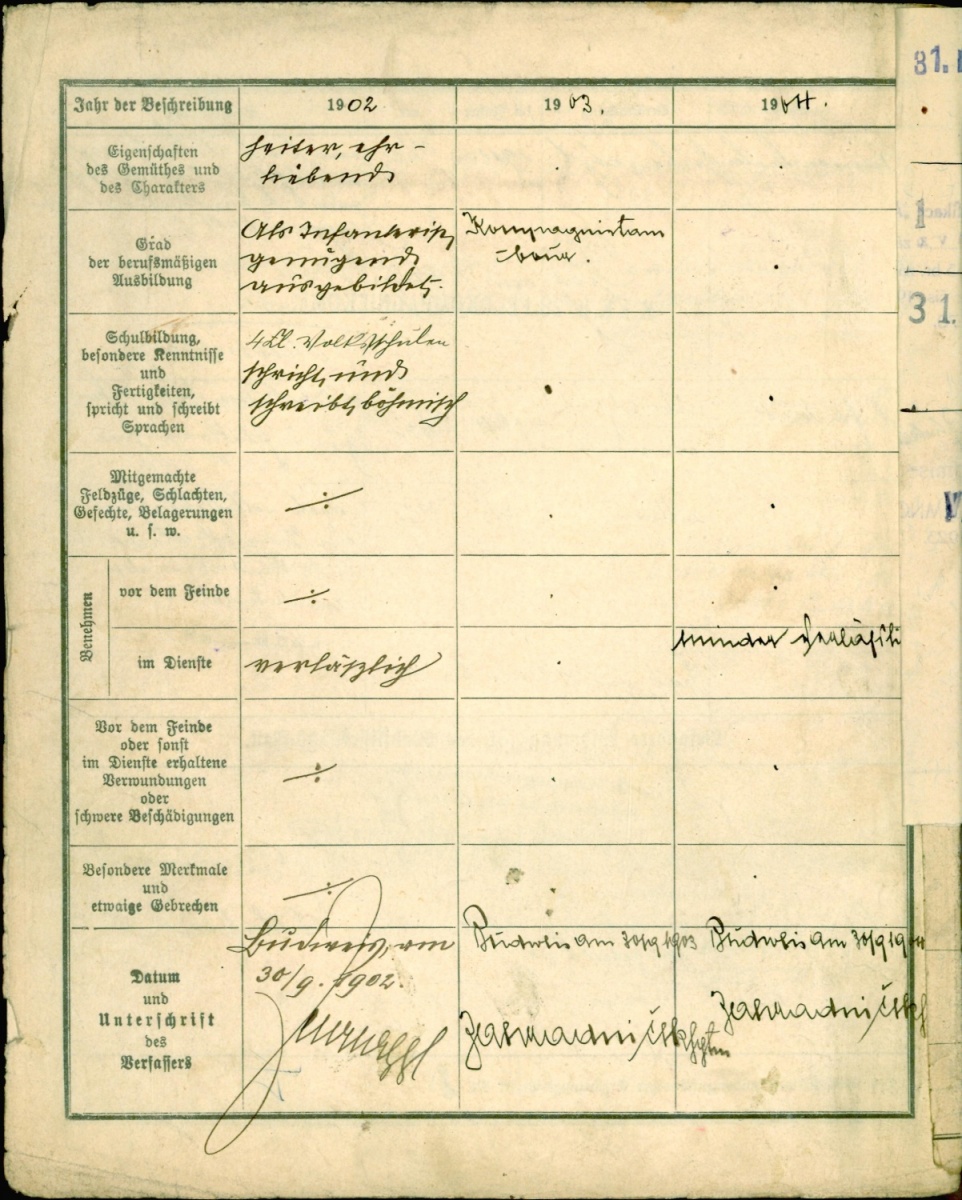 Jahr der Beschreibung 1902 1903. 1904.
Eigenschaften
des Gemüthes und
des Charakters
heiter, ehr-
liebend
Grad
der berufsmäßigen
Ausbildung
Als Infanterist
genügend
ausgebildet.
Kompagnietam
bour.
Schulbildung,
besondere Kenntnisse
und
Fertigkeiten,
spricht und schreibt
Sprachen
4 Kl. Volksschulen
spricht und
schreibt böhmisch
Mitgemachte
Feldzüge, Schlachten,
Gefechte, Belagerungen
u. s. w.
÷
Benehmen
vor dem Feinde
÷
im Dienste
verläßlich
minder verläßli
Vor dem Feinde
oder sonst
im Dienste erhaltene
Verwundungen
oder
schwere Beschädigungen
÷
Besondere Merkmale
und
etwaige Gebrechen
÷
Datum
und
Unterschrift
des
Verfassers
Budweis, am
30/9. 1902.
Budweis am 30/9 1903
Zahradniček Hptm
Budweis am 30/9 1904
Zahradniček
81.
1
31.